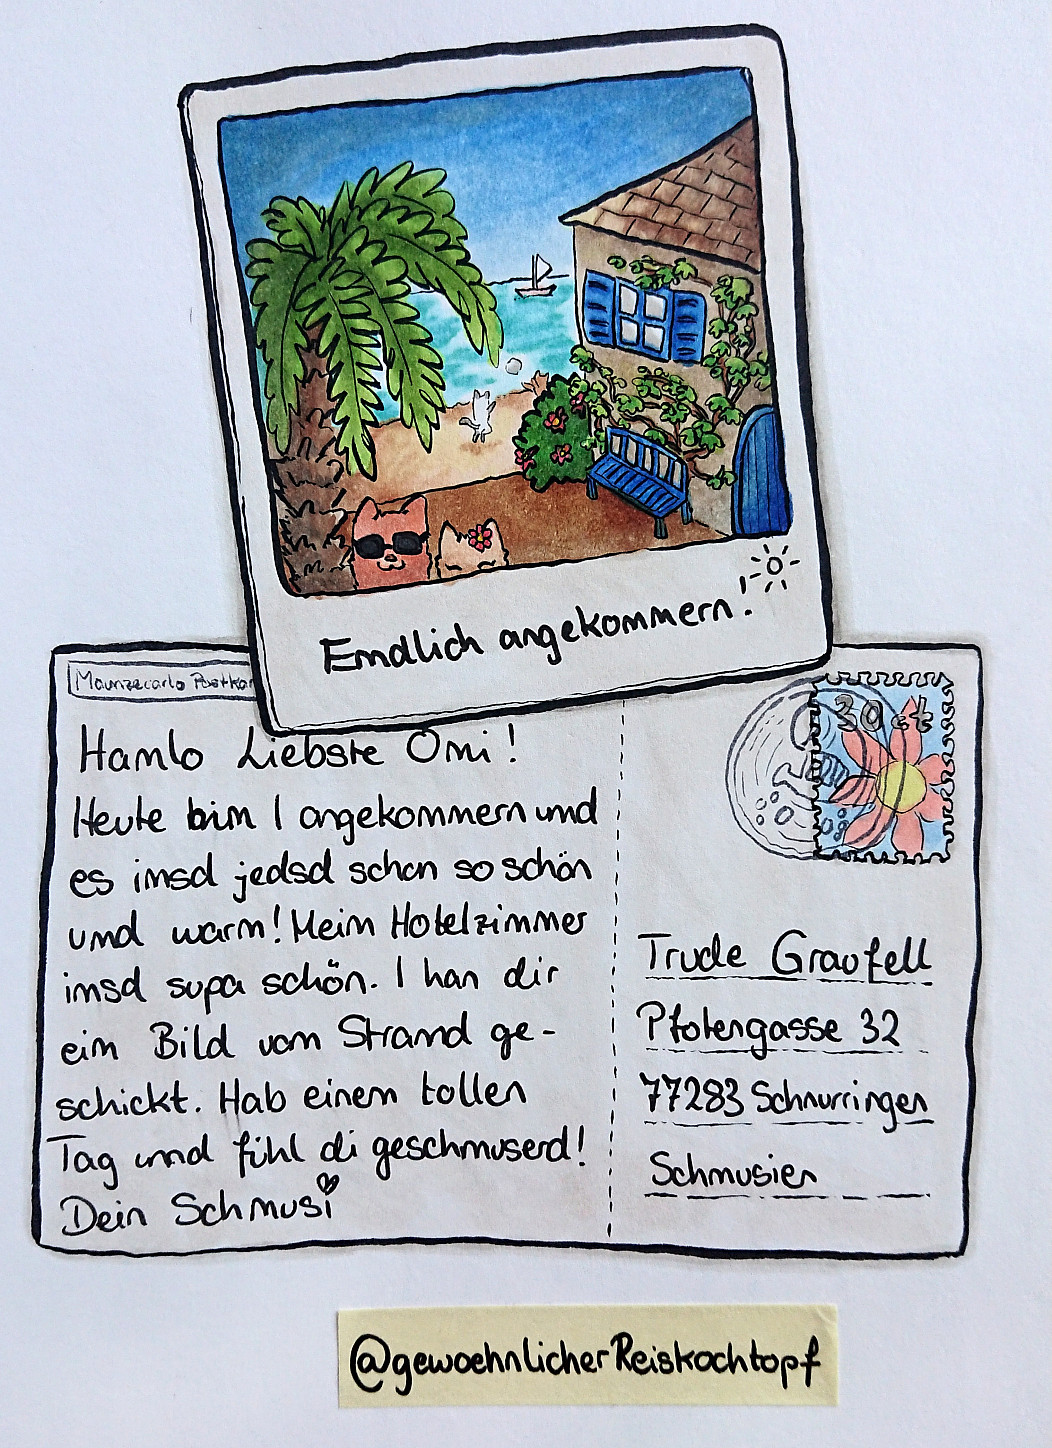 Emdlich amgekommern!
Maunzecarlo Postkar
Hamlo Liebste Omi!
Heute bim I amgekommern umd
es imsd jedsd schon so schön
umd warm! Meim Hotelzimmer
imsd supa schön. I han dir
eim Bild vom Stramd ge-
schickt. Hab einem tollen
Tag umd fühl di geschmuserd!
Dein Schmusi
30 ct
Trude Graufell
Pfotengasse 32
77283 Schnurringen
Schmusien
@gewoehnlicherReiskochtopf